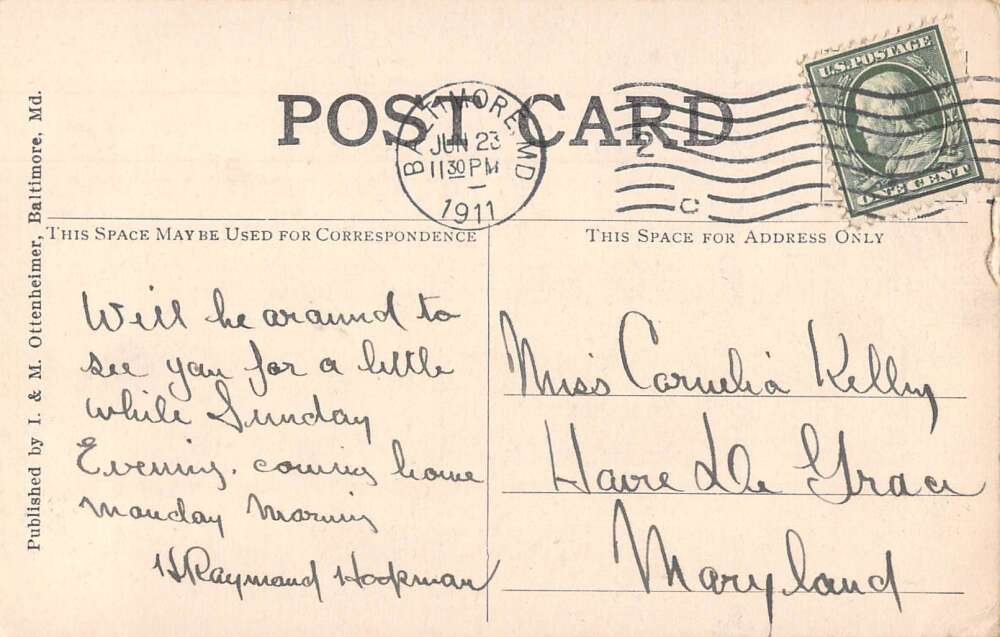 POST CARD
BALTIMORE, MD
JUN 23
11 30 PM
1911
2
C
U.S. POSTAGE
ONE CENT
Published by I. & M. Ottenheimer, Baltimore, Md.
THIS SPACE MAY BE USED FOR CORRESPONDENCE
THIS SPACE FOR ADDRESS ONLY
Will be around to
see you for a little
while Sunday
Evening. coming home
Monday Morning
H Raymond Hopkins
Miss Cornelia Kelly
Havre De Grace
Maryland